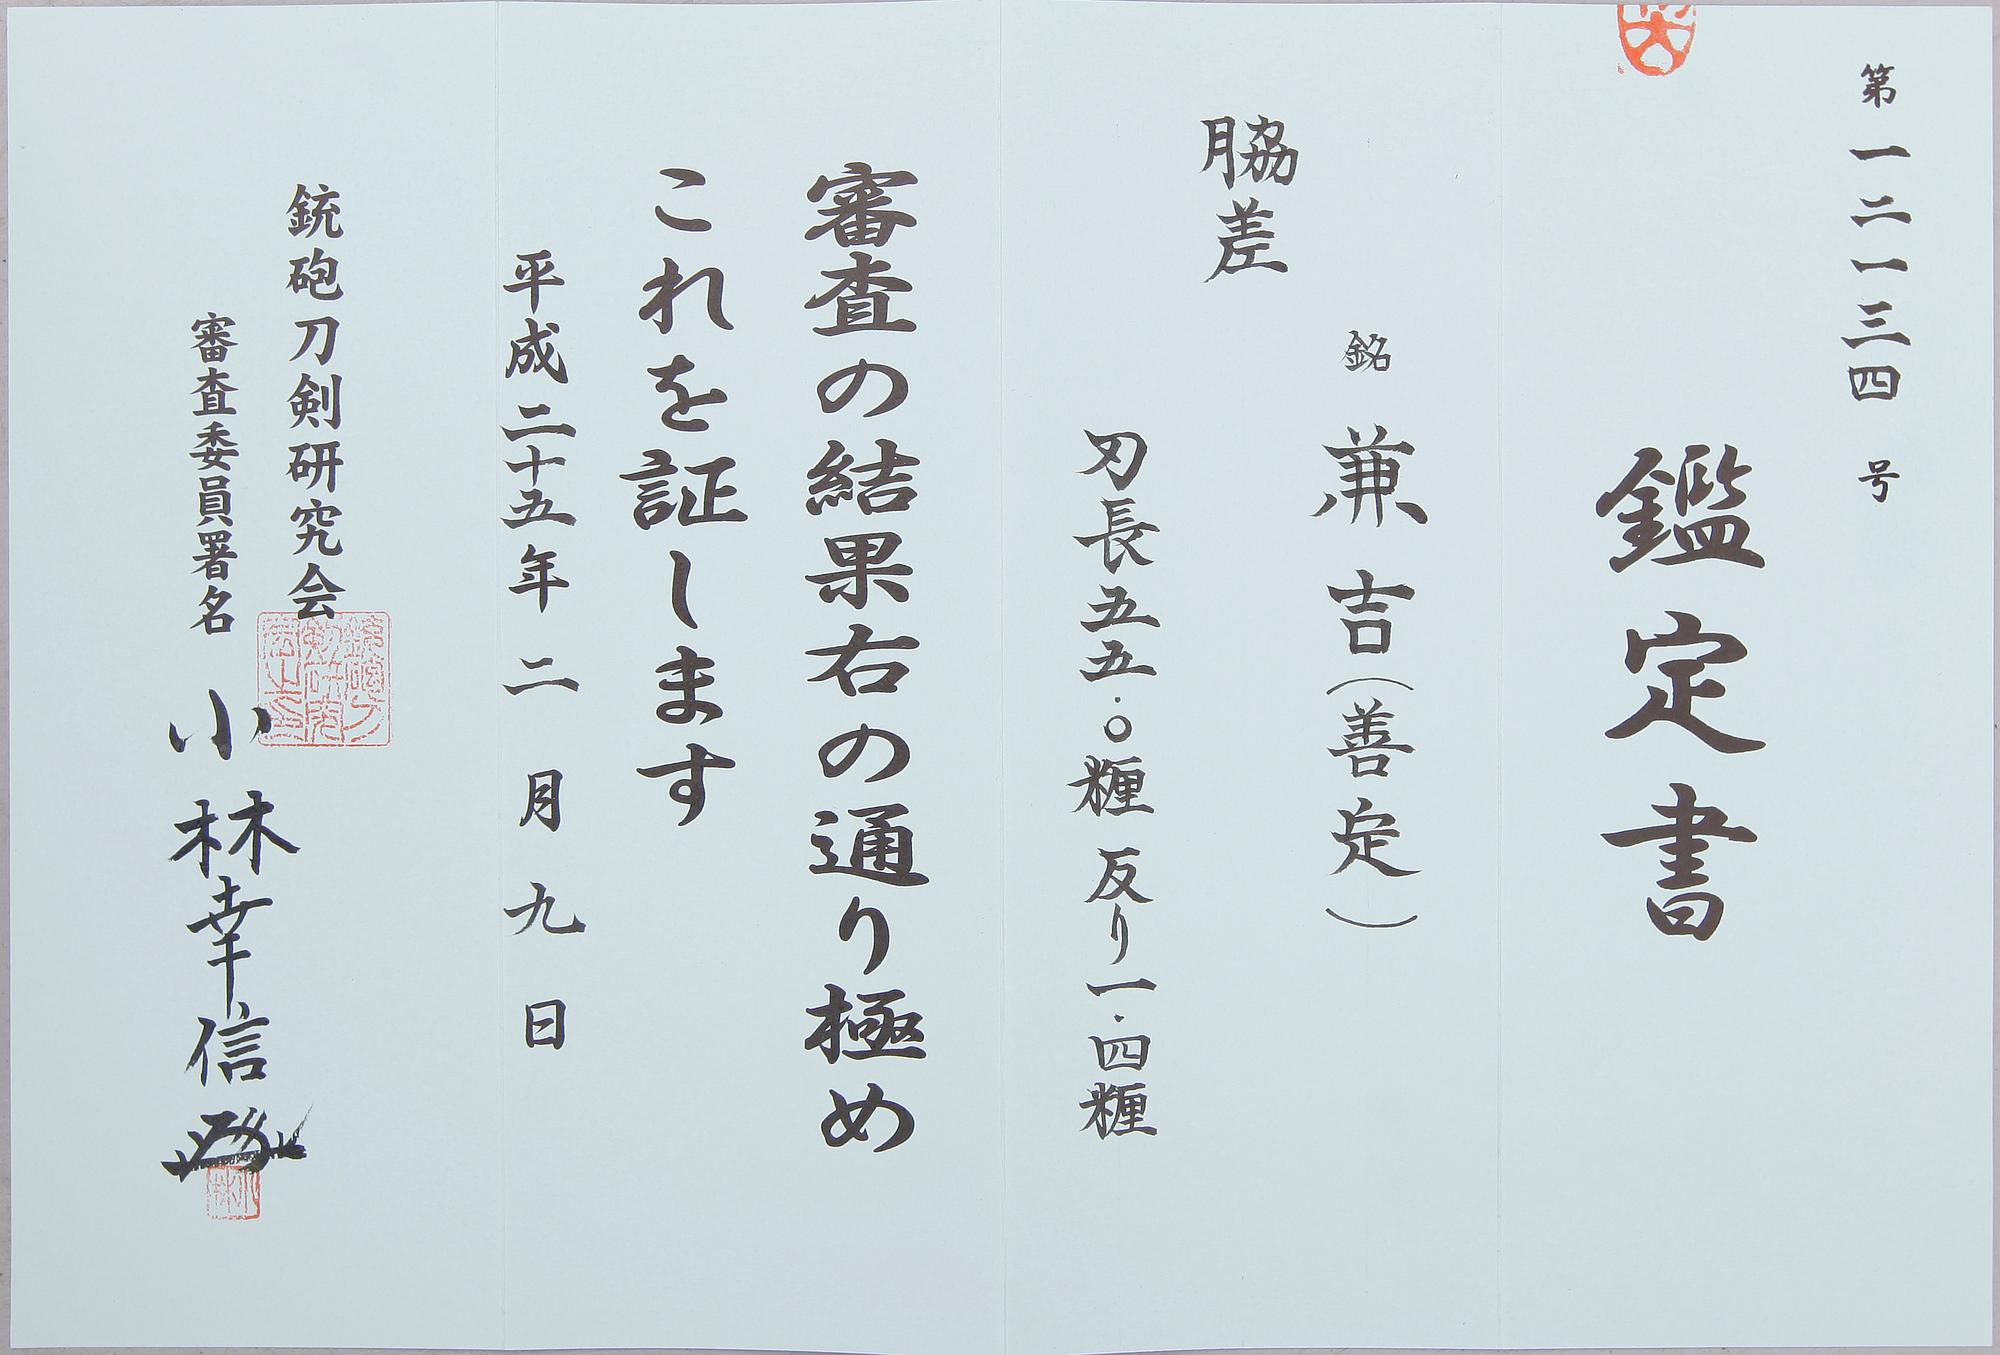 第一二一三四号
鑑定書
脇差
銘 兼吉(善定)
刃長五五.〇糎 反り一.四糎
審査の結果右の通り極め
これを証します
平成二十五年二月九日
銃砲刀剣研究会
審査委員署名 小林幸信